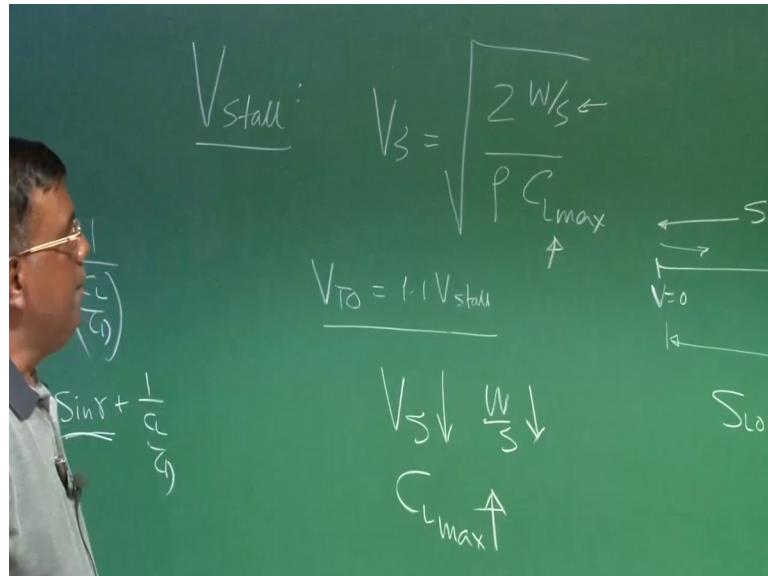 V_stall :
V_S = √(2 W/S ← / ρ C_Lmax) ↑
V_TO = 1.1 V_stall
V_S ↓ W/S ↓
C_Lmax ↑
1 / (C_L/C_D)
Sinγ + 1 / (C_L/C_D)
← S
V=0
S_LO